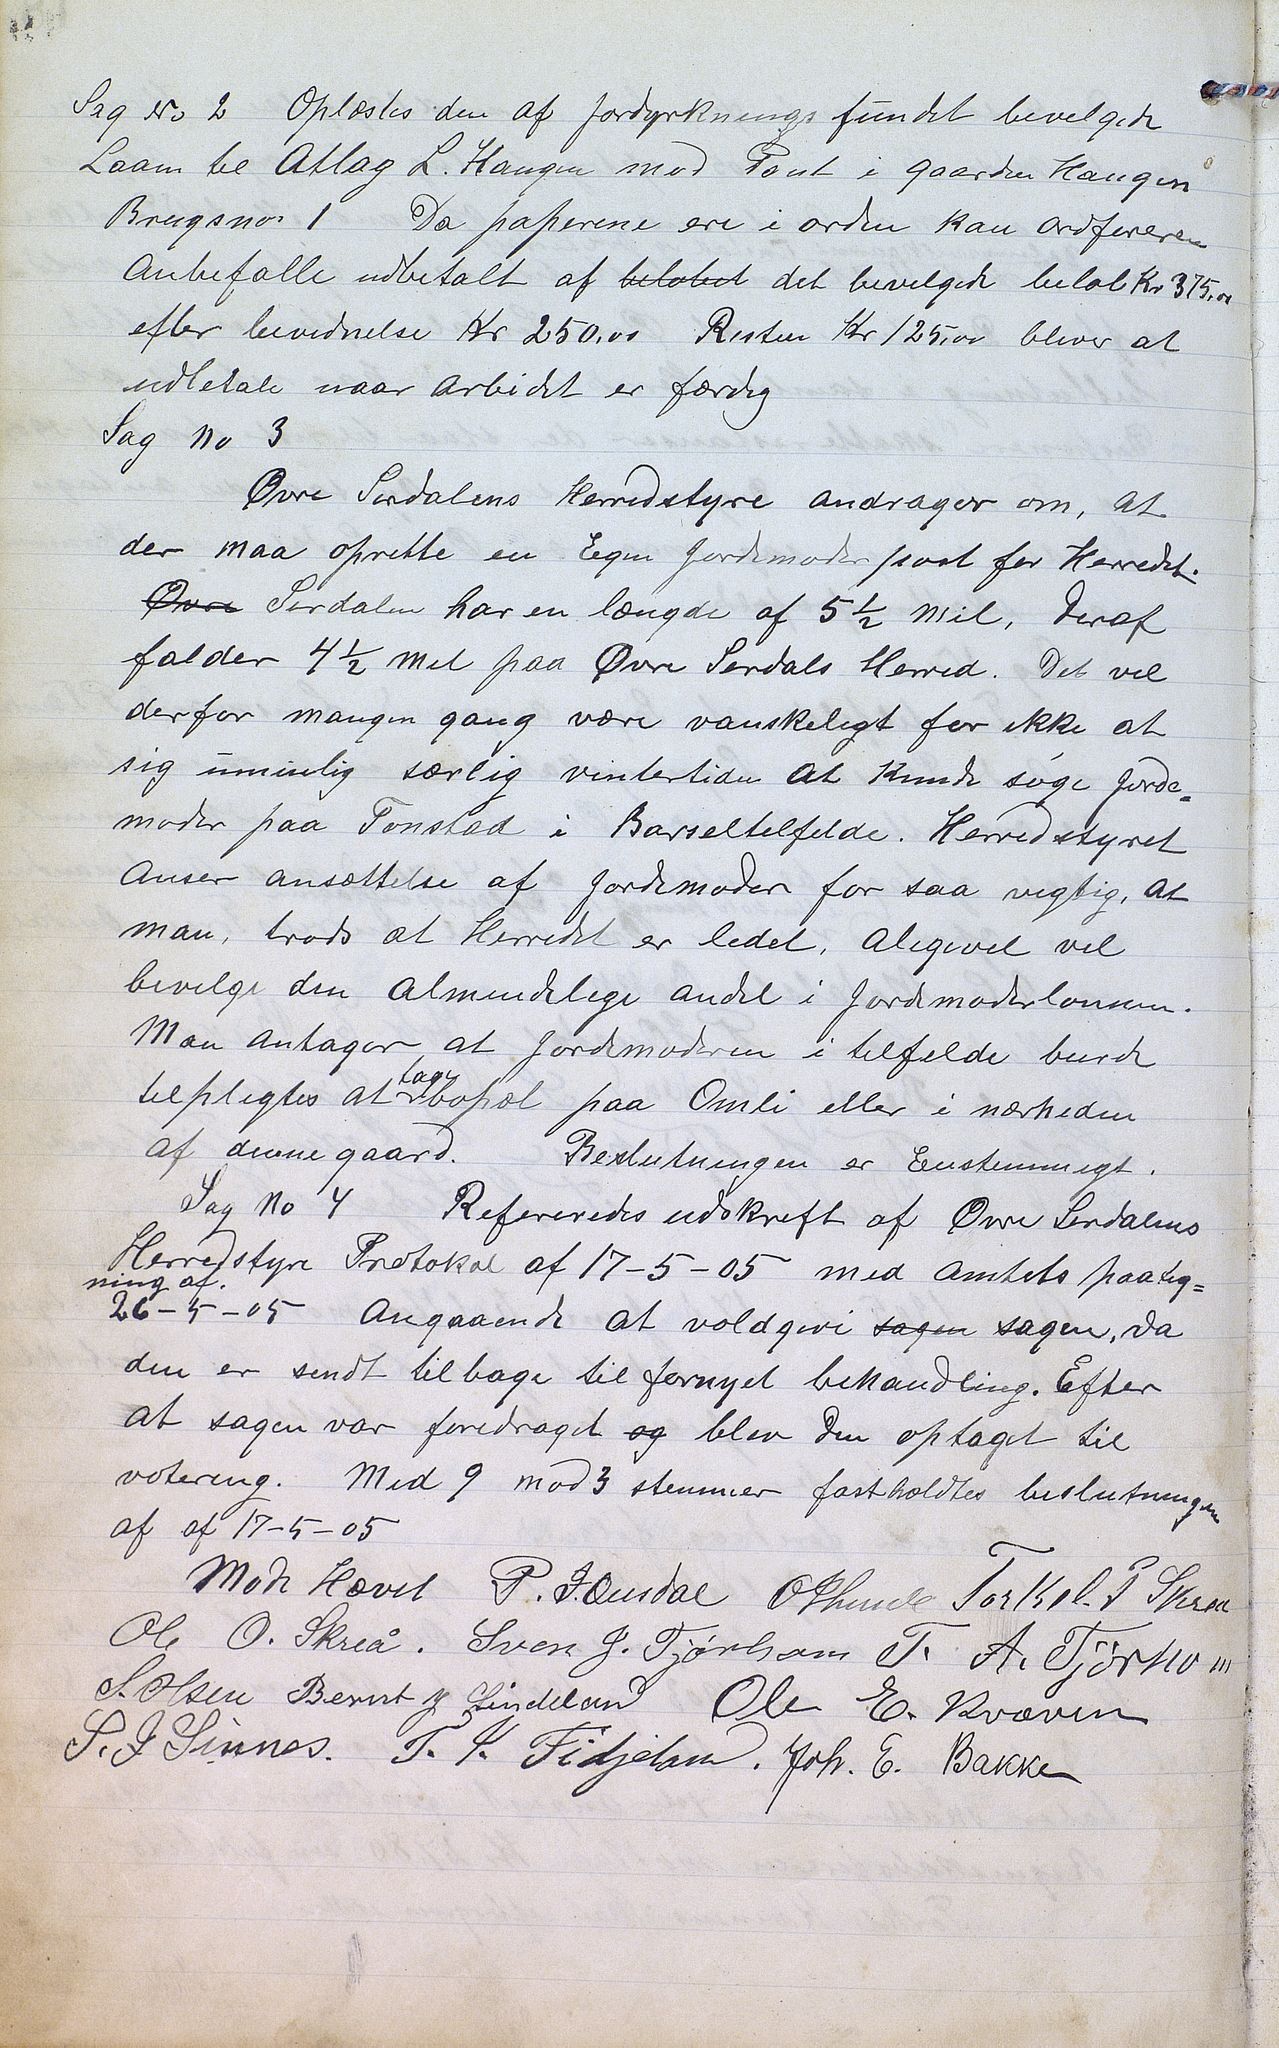 Sag No 2 Oplæstes den af Jordyrknings fundet bevelgede
Laam til Atlag L. Haugen mod Pant i gaarden Haugen
Brugsno 1 Da paperene ere i orden kan ordfereren
Anbefalle udbetalt af belobet det bevelgede belob Kr 375,00
efter bevidnelse Kr 250,00 Resten Kr 125,00 bliver at
udbetale naar arbidet er færdig
Sag No 3
Øvre Sirdalens Herredstyre andrager om, at
der maa oprette en Egen Jordemoder post for Herredet.
Øvre Sirdalen har en længde af 5 1/2 Mil, deraf
falder 4 1/2 Mil paa Øvre Serdals Herred. Det vel
derfor mangen gang være vanskeligt for ikke at
sig umulig særlig vintertiden at kunde søge Jorde=
moder paa Tonstad i Barseltelfelde. Herredstyret
anser ansættelse af Jordemoder for saa vegtig, at
man, trods at Herredet er ledet, aligevel vel
bevelge den almendelige andel i Jordemoderlonnen.
Man antager at Jordemoderen i telfelde burde
telplegtes at tage bopæl paa Omli eller i nærheden
af denne gaard. Beslutningen er Enstemmegt.
Sag No 4 Refereredes udskreft af Øvre Serdalens
Herredstyre Protokol af 17-5-05 med Amtets paateg=
ning af.
26-5-05 Angaaende at voldgive sagen sagen, da
den er sendt tilbage til fornyet behandling. Efter
at sagen var foredraget og blev den optaget til
votering. Med 9 mod 3 stemmer fastholdtes beslutningen
af af 17-5-05
Møde Hævet P. J. Ousdal Torkel. P Skrea
Ole O. Skreå. Sven J. Tjørhom T. A. Tjørhom
S. Olsen Bernt J Sindeland Ole E. Kvæven
S. J Sinnes. T. T. Fidjeland. Joh. E. Bakken